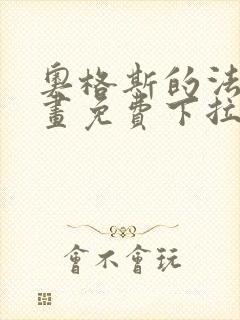 奧格斯的法
畫免費下拉
會不會玩